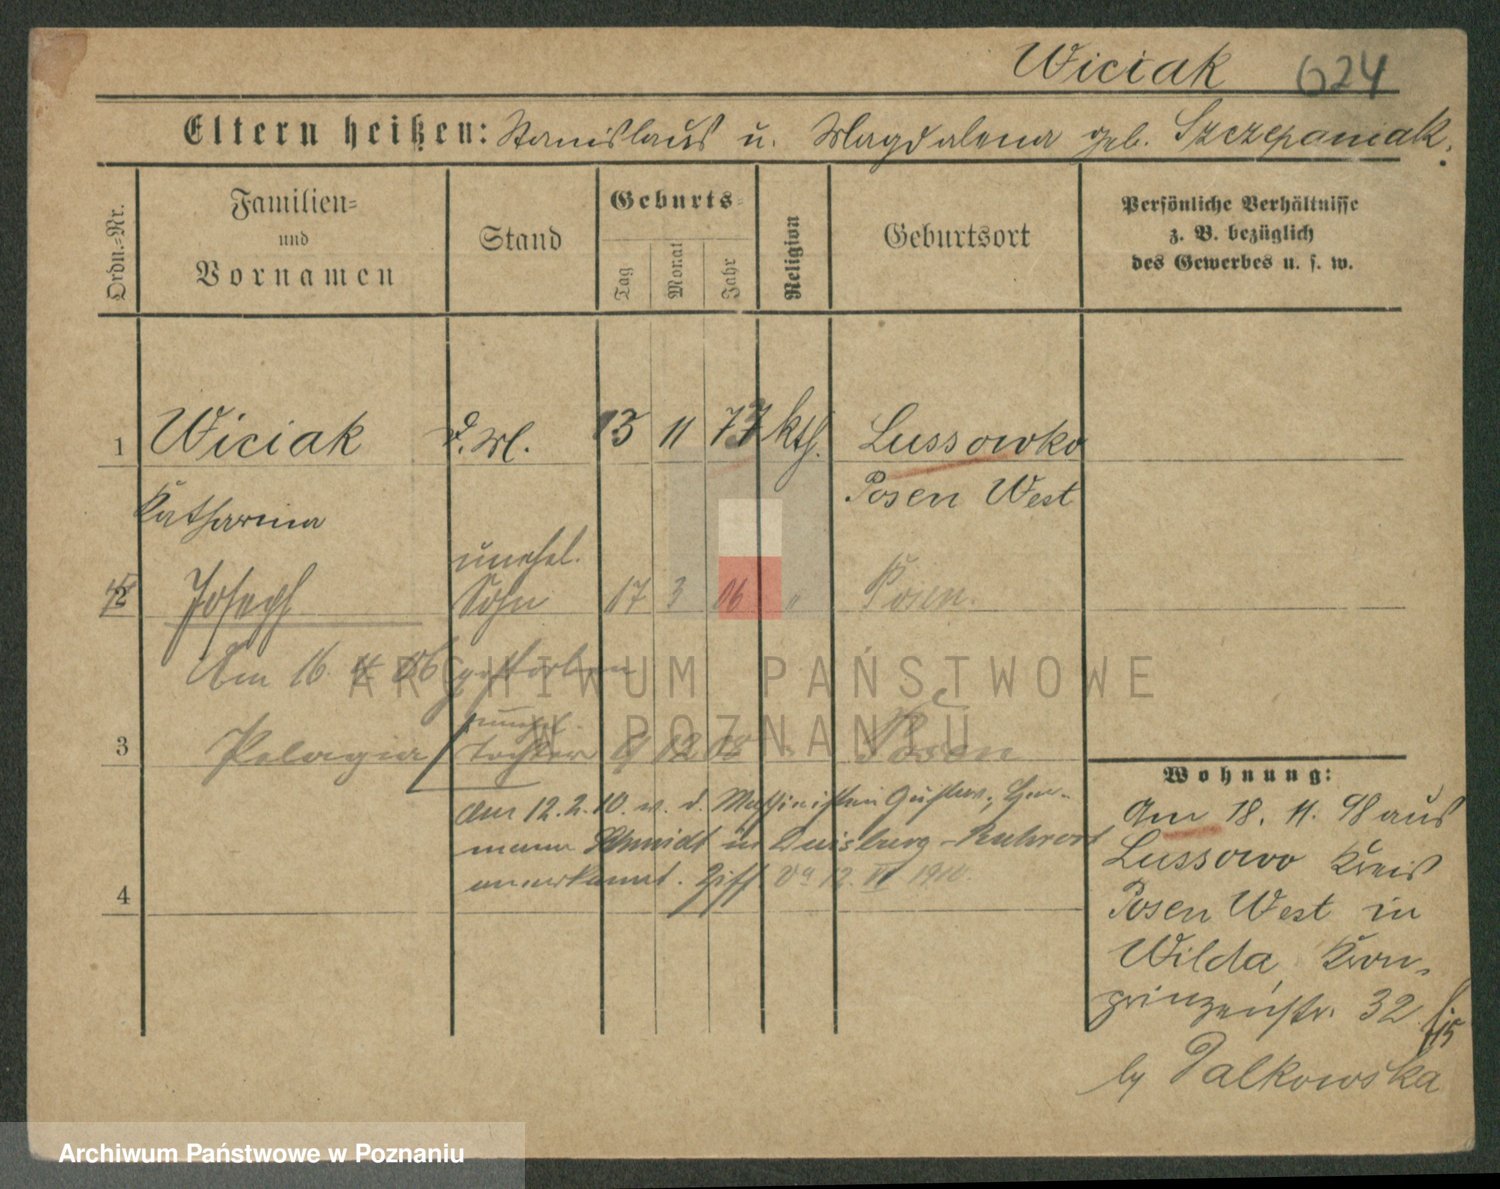 Wiciak 624
Eltern heißen: Stanislaus u. Magdalena geb. Szczepaniak.
Ordn.=Nr.
Familien=
und
Vornamen
Stand
Geburts=
Tag
Monat
Jahr
Religion
Geburtsort
Persönliche Verhältnisse
z. B. bezüglich
des Gewerbes u. s. w.
1 Wiciak d. M. 13 11 77 kth. Lussowko
Posen West
Katharina
unehel.
2 Joseph Sohn 17 3 06 " Posen.
Am 16. 4. 06 gestorben
unehel.
3 Pelagia Tochter 9 12 08 " Posen
Am 12.2.10. v. d. Maschinisten Gustav, Her-
mann Schmidt in Duisburg-Ruhrort
anerkannt. 12. VI 1910.
4
Wohnung:
Am 18. 11. 98 aus
Lussowo Kreis
Posen West in
Wilda, Kron-
prinzenstr. 32
by Palkowska
ARCHIWUM PAŃSTWOWE
W POZNANIU
Archiwum Państwowe w Poznaniu